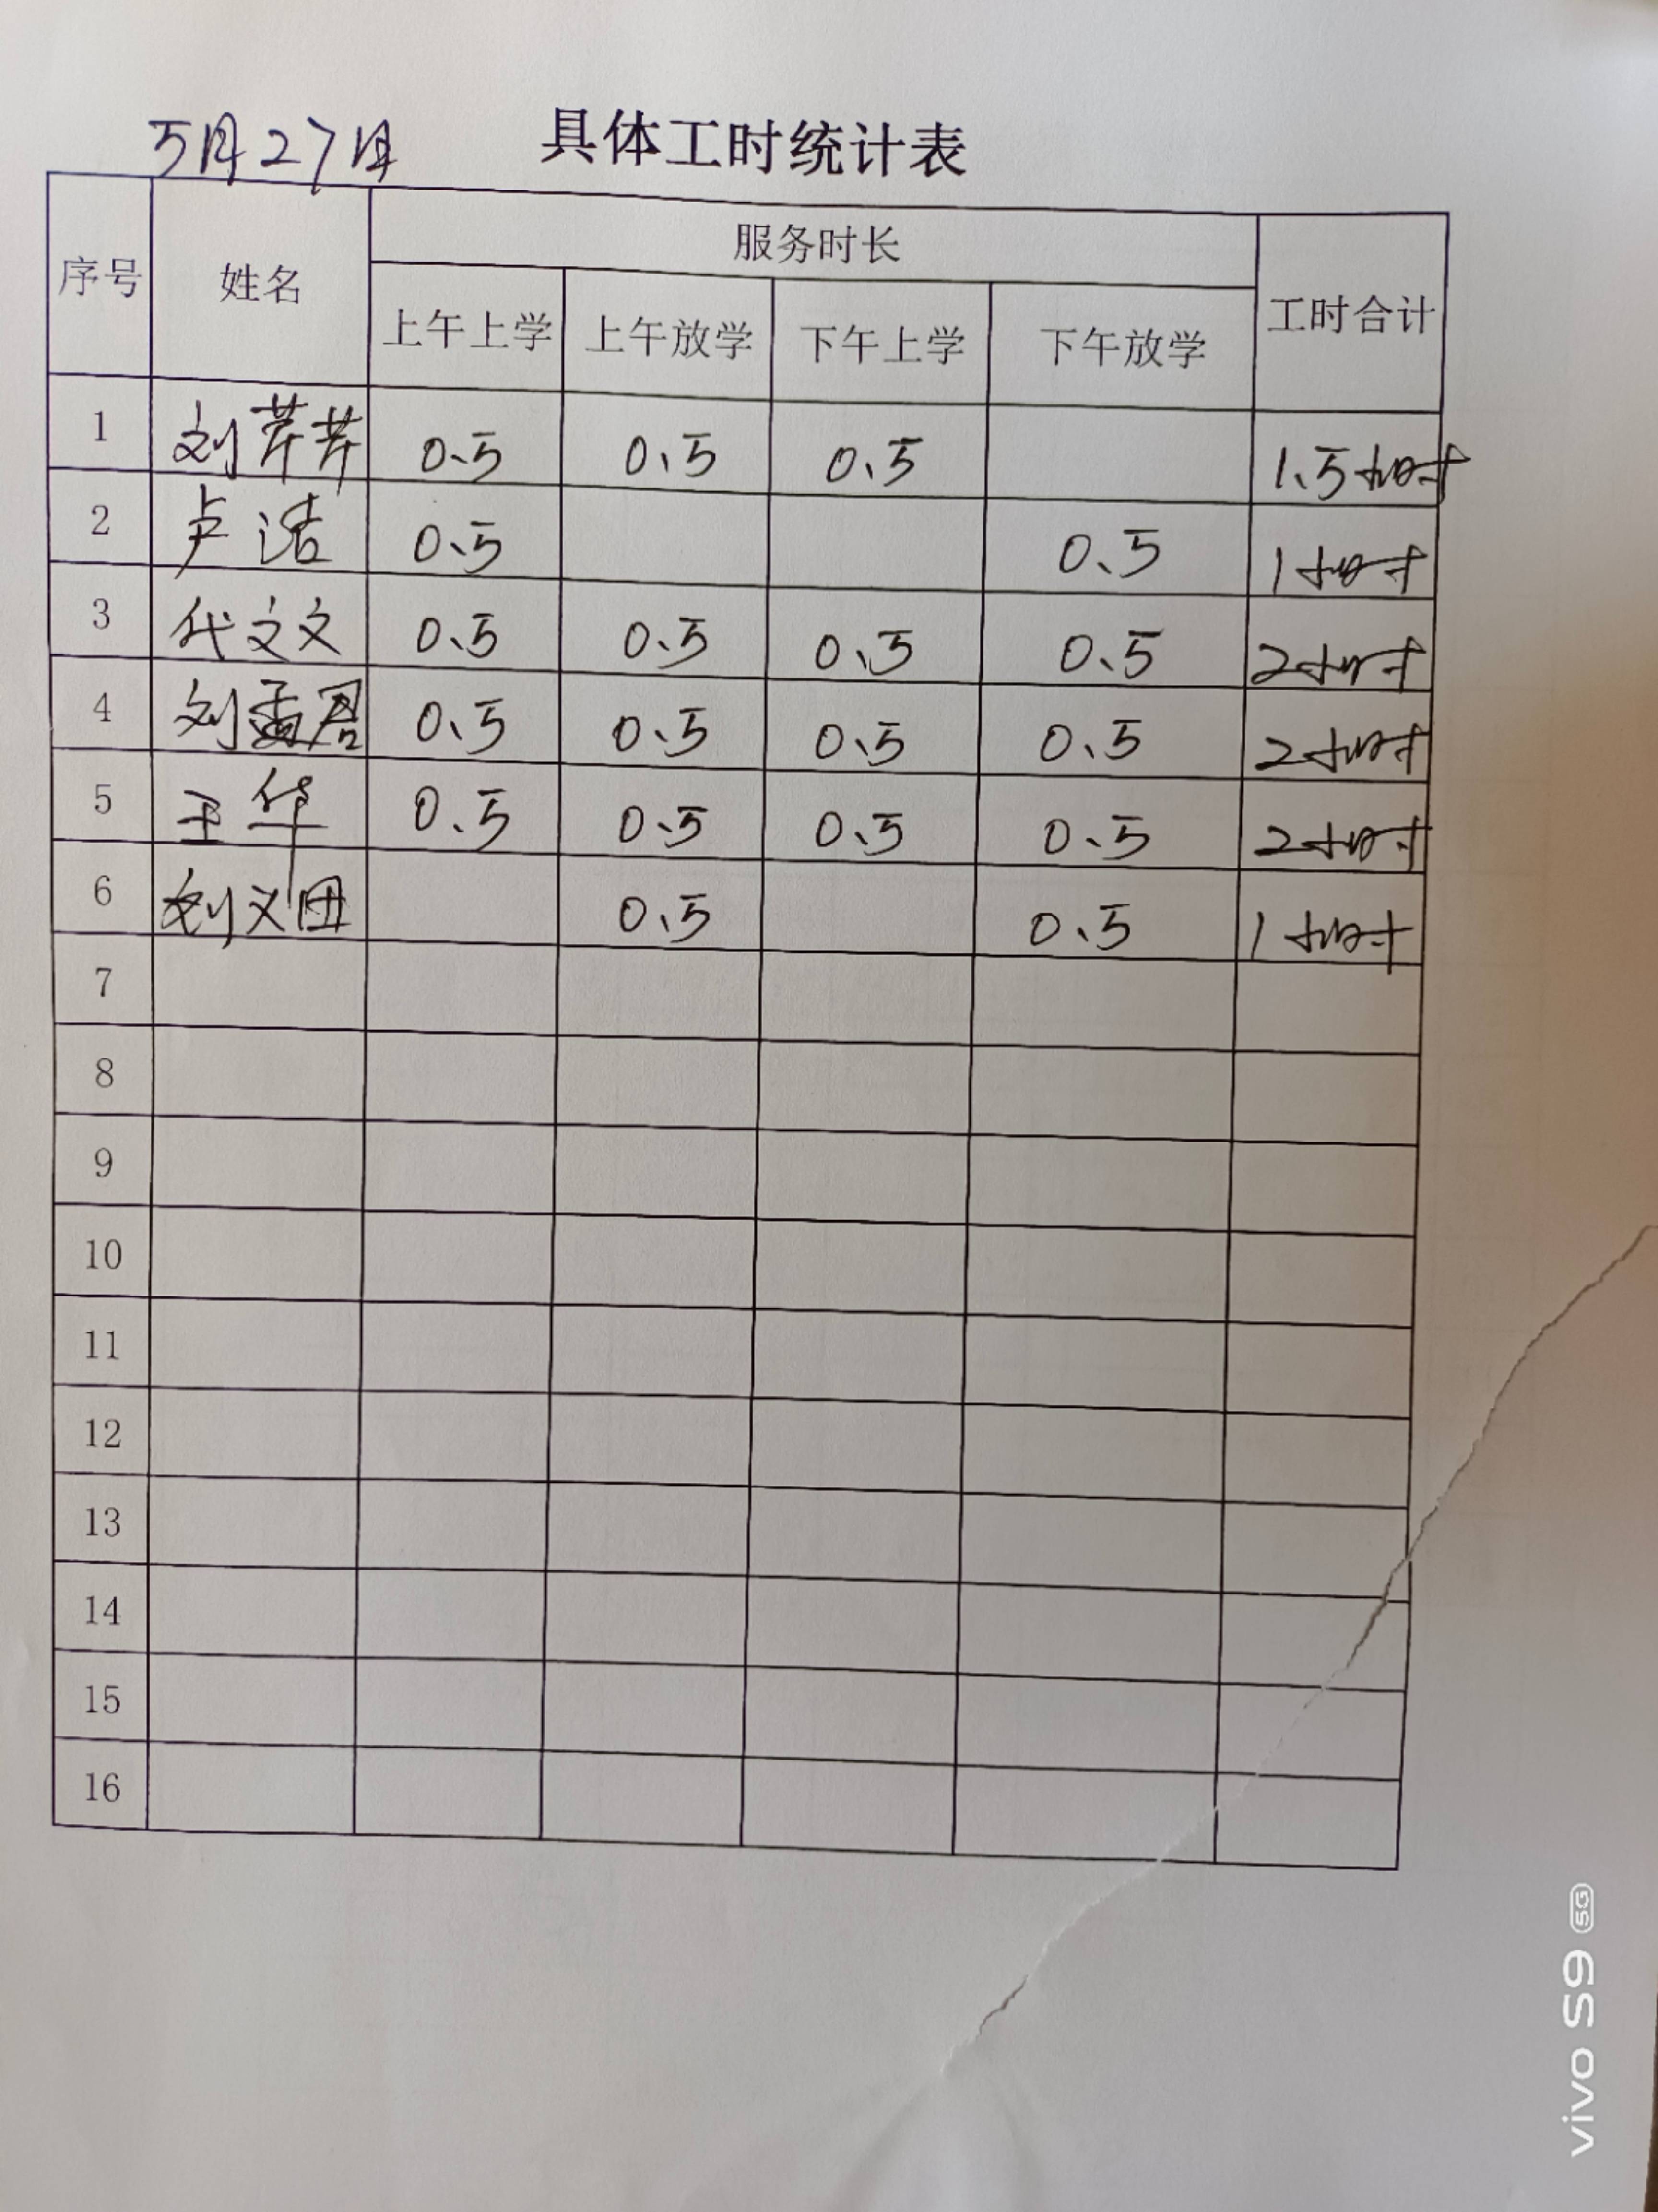 5月27日 具体工时统计表
序号 姓名 服务时长 工时合计
上午上学 上午放学 下午上学 下午放学
1 刘芹芹 0.5 0.5 0.5 1.5小时
2 卢浩 0.5 0.5 1小时
3 代文文 0.5 0.5 0.5 0.5 2小时
4 刘孟君 0.5 0.5 0.5 0.5 2小时
5 王华 0.5 0.5 0.5 0.5 2小时
6 刘义田 0.5 0.5 1小时
7
8
9
10
11
12
13
14
15
16
vivo S9 5G